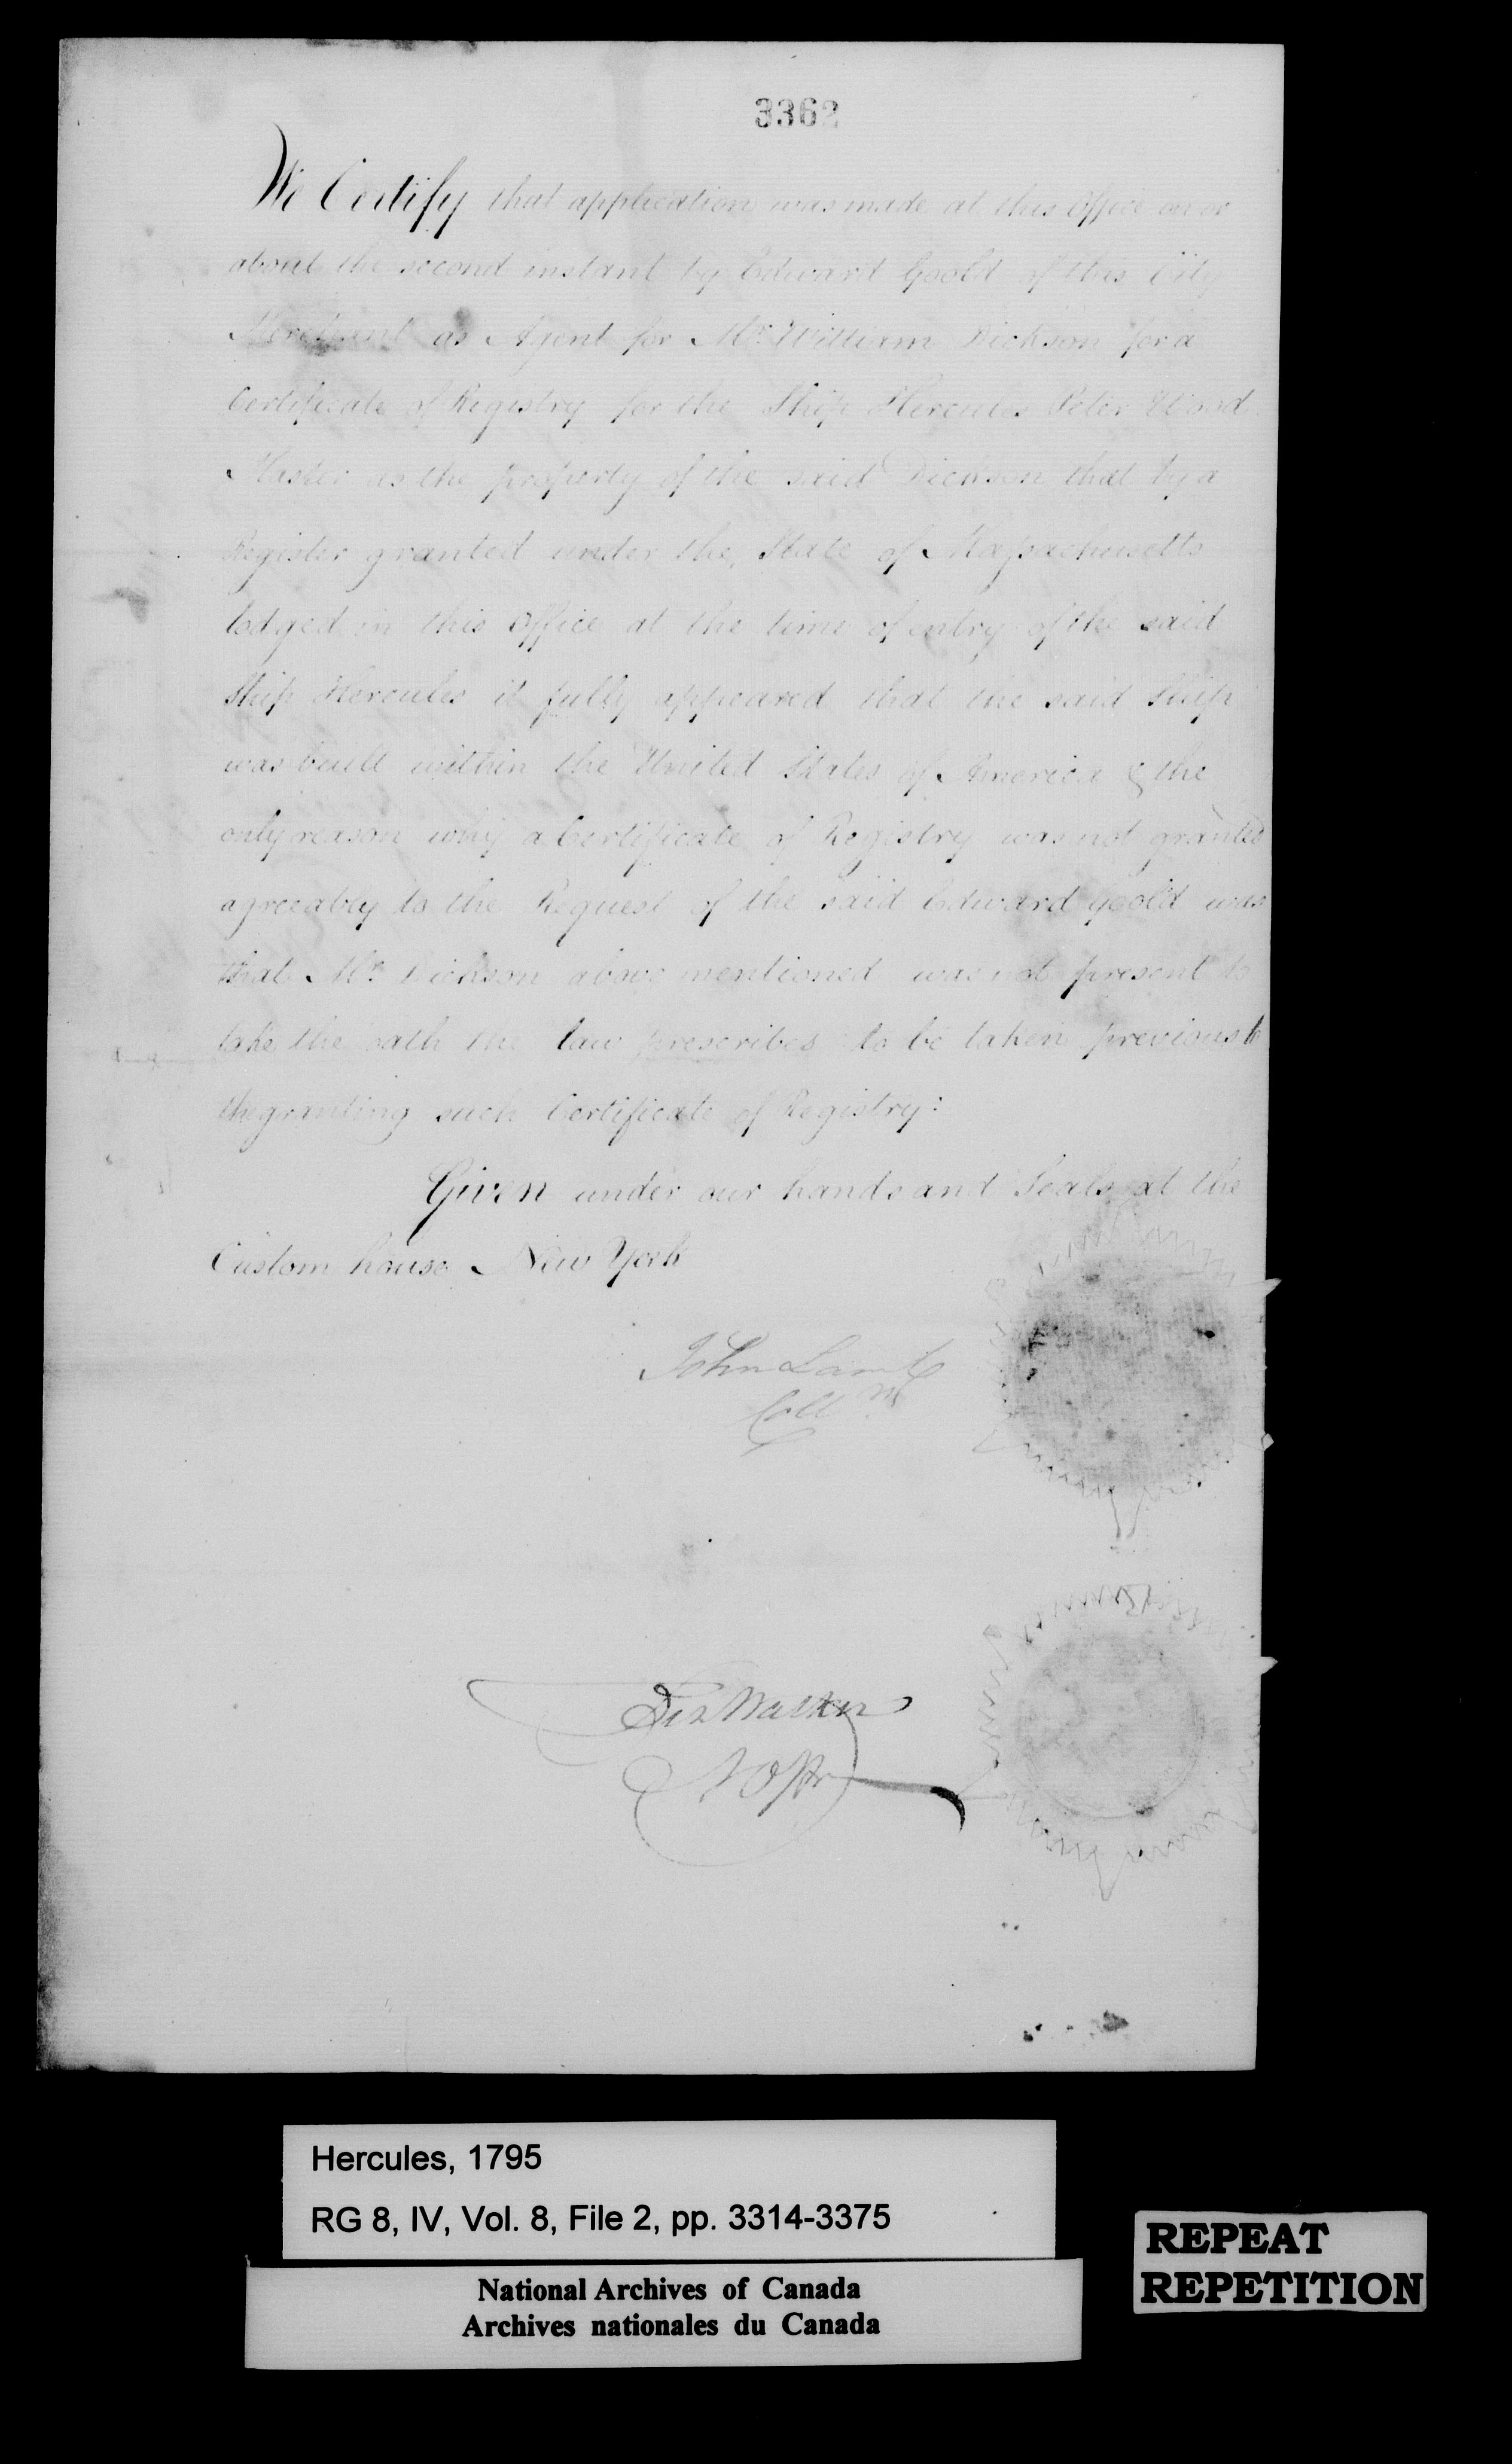 3362
We Certify that application was made at this Office on or
about the second instant by Edward Goold of this City
Merchant as Agent for Mr. William Dickson for a
Certificate of Registry for the Ship Hercules Peter Wood
Master as the property of the said Dickson that by a
Register granted under the State of Massachusetts
lodged in this Office at the time of entry of the said
Ship Hercules it fully appeared that the said Ship
was built within the United States of America & the
only reason why a Certificate of Registry was not granted
agreeably to the Request of the said Edward Goold was
that Mr. Dickson above mentioned was not present to
take the oath the law prescribes to be taken previous to
the granting such Certificate of Registry:
Given under our hands and Seals at the
Custom house New York
John Lamb
Coll
Hercules, 1795
RG 8, IV, Vol. 8, File 2, pp. 3314-3375
National Archives of Canada
Archives nationales du Canada
REPEAT
REPETITION